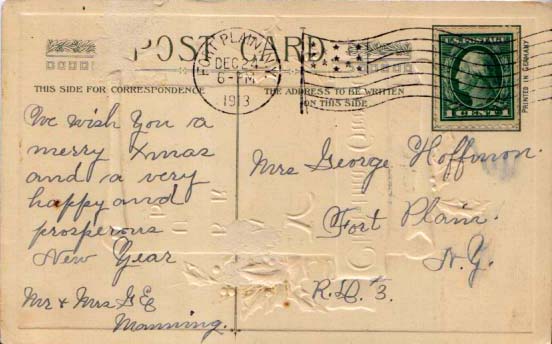 POST CARD
FORT PLAIN, N.Y.
DEC 24
6-PM
1913
U.S. POSTAGE
1 CENT 1
PRINTED IN GERMANY
THIS SIDE FOR CORRESPONDENCE
THE ADDRESS TO BE WRITTEN
ON THIS SIDE
We wish you a
merry Xmas
and a very
happy and
prosperous
New Year
Mr & Mrs G E
Manning.
Mrs George Hoffmon.
Fort Plain.
N.Y.
R.D. #3.